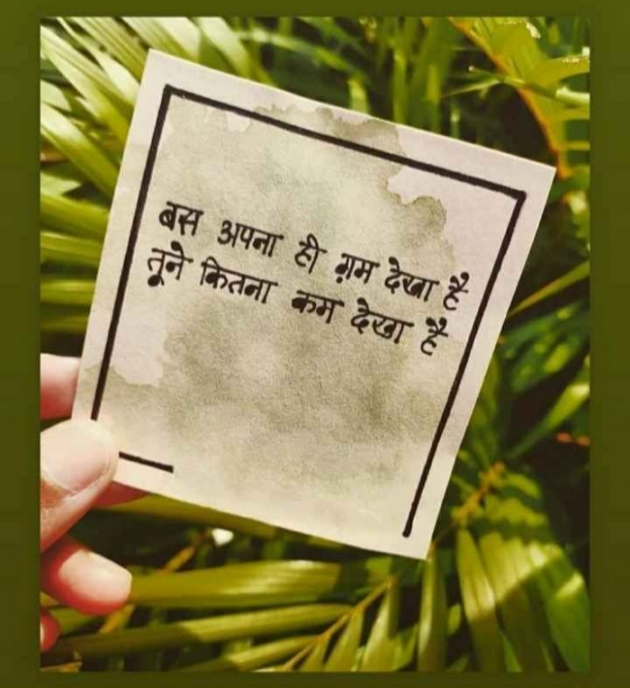 बस अपना ही ग़म देखा है
तूने कितना कम देखा है